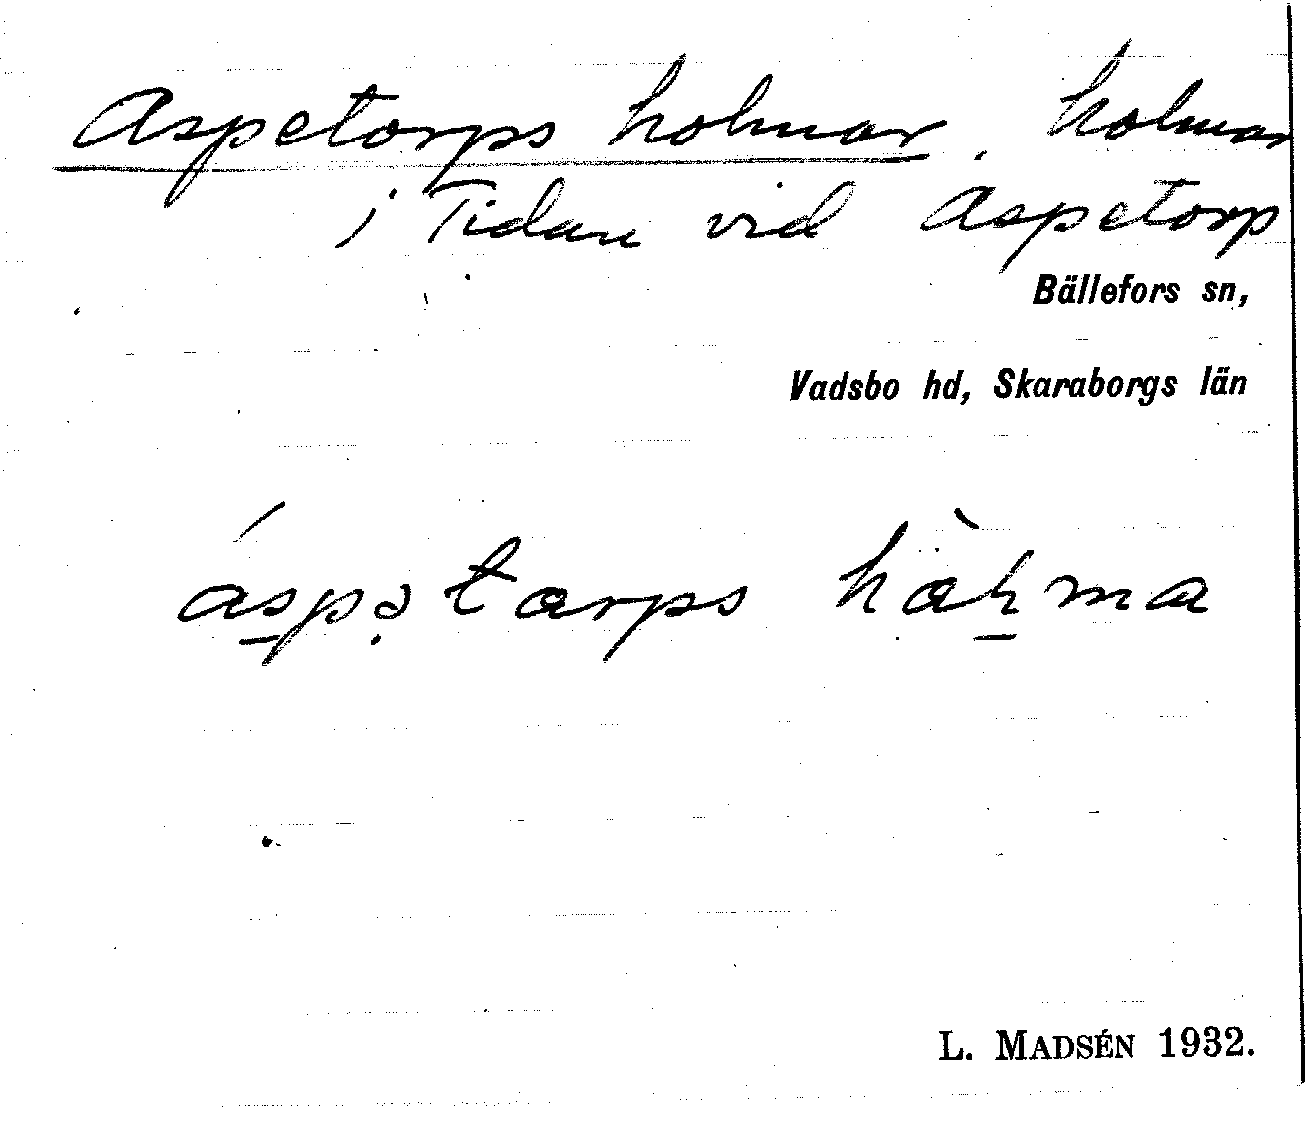 Aspetorps holmar. holmar
i Tidan vid Aspetorp
Bällefors sn,
Vadsbo hd, Skaraborgs län
áspətarps
L. MADSÉN 1932.